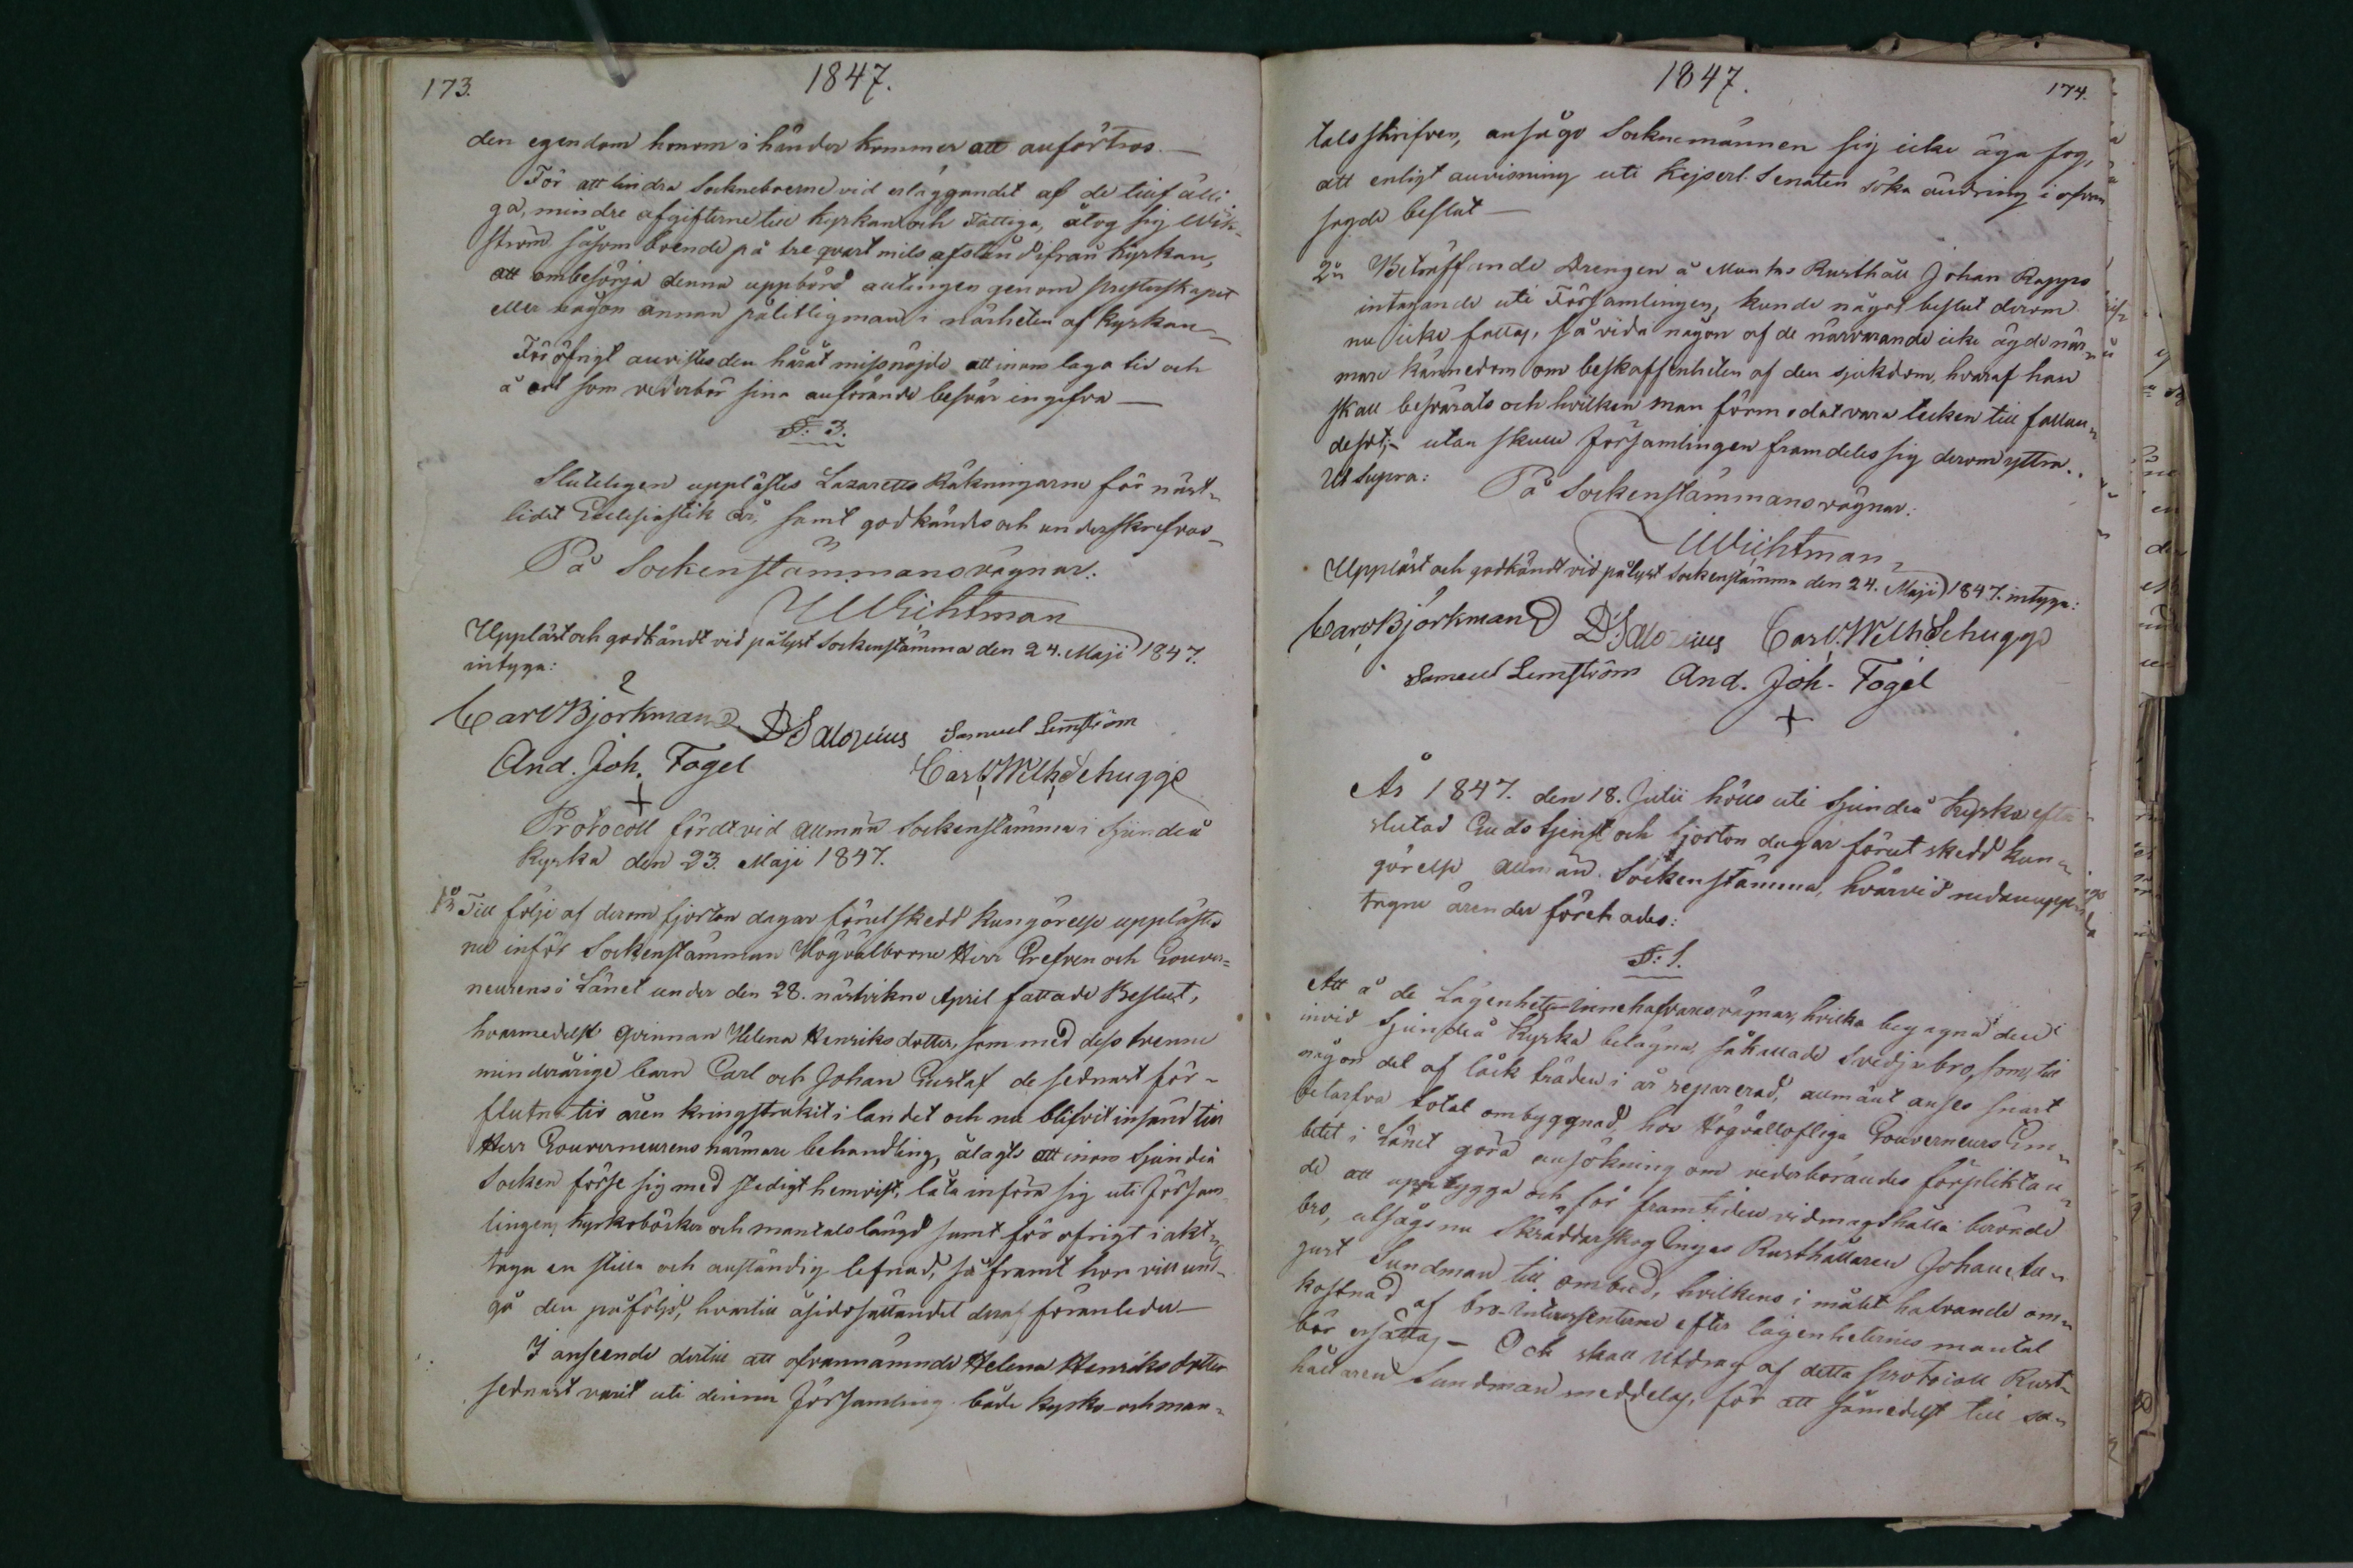 173.
1847.
den egendom honom i händer kommer att anförtros. —
För att lindra Sockneboerne vid erläggandet af de tillfälli
ga, mindre afgifterne till Kyrkan och Fattiga, åtog sig Wik-
ström såsom boende på tre qvart mils afstånd ifrån Kyrkan,
att ombesörja denna uppbörd antingen genom Presterskapet
eller någon annan pålitlig man i närheten af Kyrkan —
För öfrigt anvistes den häråt missnöjde att inom laga tid och
å ort som vederbör sina anförande besvär ingifva —
§: 3.
Slutligen upplästes Lazaretts Räkningarne för näst-
lidet Ecclesiastik år, samt godkändes och underskrefvos —
På Sockenstämmans vägnar:
Wichtman
Uppläst och godkändt vid pålyst Sockenstämma den 24. Maji 1847.
intyga:
Carl Björkman D Salozius Samuel Lemström
And. Joh. Fogel Carl Wilh. Schugge
Protocoll fördt vid allmän Sockenstämma i Sjundeå
Kyrka den 23. Maji 1847.
1o Till följe af derom fjorton dagar förut skedd Kungörelse upplästes
nu inför Sockenstämman Högvälborne Herr Grefven och Gouver=
neurens i Länet under den 28. nästvikne April fattade Beslut,
hvarmedelst qvinnan Helena Henriksdotter, som med dess tvenne
minderårige barn Carl och Johan Gustaf de sednast för-
flutne tio åren kringstrukit i landet och nu blifvit insänd till
Herr Gouverneurens närmare behandling, ålagts att inom Sjundeå
Socken förse sig med stadigt hemvist, låta införa sig uti Försam
lingens Kyrkoböcker och mantalslängd samt för öfrigt iakt-
taga en stilla och anständig lefnad, så framt hon vill und-
gå den påföljd, hvartill åsidosättandet deraf föranleder —
I anseende dertill att ofvannämnde Helena Henriksdotter
sednast varit uti denna Församling både Kyrko- och man-
1847.
174.
talsskrifven, ansågo Socknemännen sig icke äga fog,
att enligt anvisning uti Kejserl. Senaten söka ändring i ofvan
sagde beslut —
2o Beträffande Drengen å Munks Rusthåll Johan Rapps
intagande uti Församlingen, kunde något beslut derom
nu icke fattas, så vida någon af de närvarande icke ägde när-
mare kännedom om beskaffenheten af den sjukdom, hvaraf han
skall besvärats och hvilken man förmodat vara tecken till fallan-
desot; — utan skulle Församlingen framdeles sig derom yttra.
Ut supra:
På Sockenstämmans vägnar:
Wichtman
Uppläst och godkändt vid pålyst Sockenstämma den 24. Maji 1847. intyga:
Carl Björkman D Salozius Carl Wilh. Schugge
Samuel Lemström And. Joh. Fogel
År 1847. den 18. Julii hölls uti Sjundeå Kyrka efter
slutad Gudstjenst och fjorton dagar förut skedd kun-
görelse allmän Sockenstämma, hvarvid nedanupp-
tagne ärender förehades:
§: 1.
Att å de Lägenhets-Innehafvares vägnar, hvilka begagna den
invid Sjundeå Kyrka belägna, såkallade Svedjebro, som till
någon del af låck träden i år reparerad, allmänt anses snart
betarfva total ombyggnad, hos Högvällofliga Gouverneurs Em-
betet i Länet göra ansökning om vederbörandes förpliktan-
de att uppbygga och för framtiden vidmagthålla berörde
bro, utsågs nu Skräddarskog Inges Rusthållaren Johan Au-
gust Sundman till ombud, hvilkens i målet hafvande om-
kostnad af bro-Intressenterne efter lägenheternes mantal
bör ersättas — Och skall Utdrag af detta Protocoll Rust-
hållaren Sundman meddelas, för att såmedelst till sa-